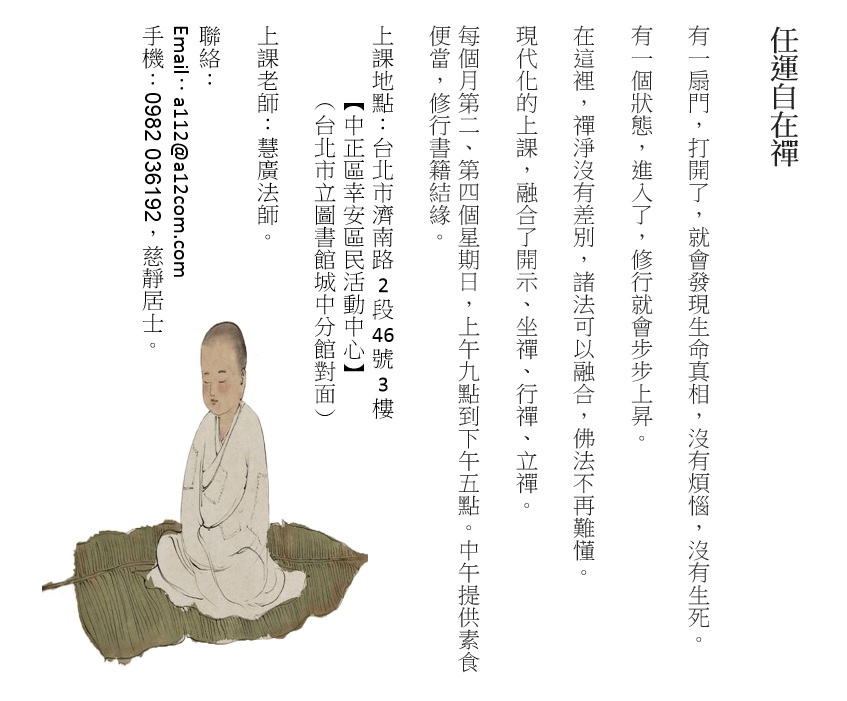 任運自在禪
有一扇門，打開了，就會發現生命真相，沒有煩惱，沒有生死。
有一個狀態，進入了，修行就會步步上昇。
在這裡，禪淨沒有差別，諸法可以融合，佛法不再難懂。
現代化的上課，融合了開示、坐禪、行禪、立禪。
每個月第二、第四個星期日，上午九點到下午五點。中午提供素食
便當，修行書籍結緣。
上課地點：台北市濟南路 2 段 46 號 3 樓
【中正區幸安區民活動中心】
（台北市立圖書館城中分館對面）
上課老師：慧廣法師。
聯絡：
Email：a112@a12com.com
手機：0982 036192，慈靜居士。